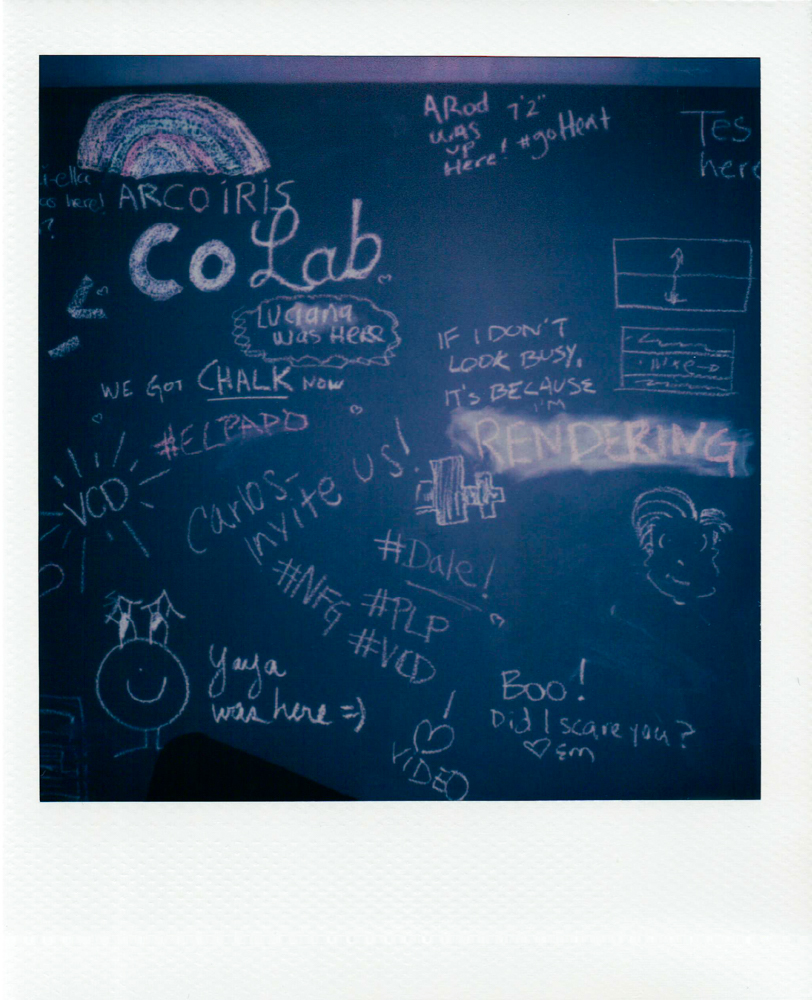 ARod 7'2"
was
up
Here! #goHeat
Tes
here
was here!
?
ARCO IRIS
CoLab
Luciana
was Here
WE GOT CHALK NOW
#ELPADO
IF I DON'T
LOOK BUSY,
IT'S BECAUSE
I'M
RENDERING
VCD
Carlos-
invite us!
#Dale!
#NFG
#PLP
#VCD
Yaya
was here =)
Boo!
Did I scare you?
♡ Em
! ♡
VIDEO